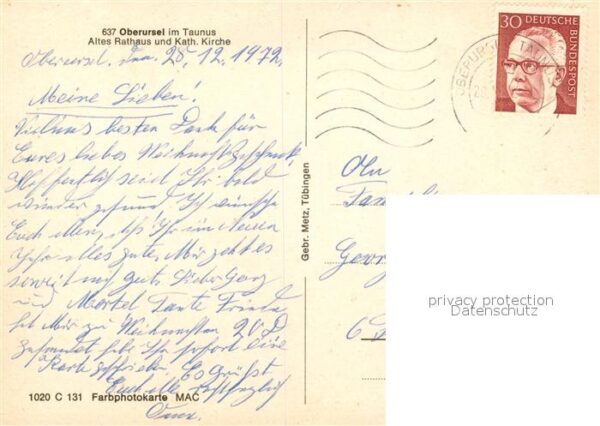 637 Oberursel im Taunus
Altes Rathaus und Kath. Kirche
Oberursel, den 28.12.1972
Meine Lieben!
Vielmals besten Dank für
Eures liebes Weihnachtsgeschenk
Hoffentlich seid Ihr bald
wieder gesund. Ich wünsche
Euch allen, daß Ihr im Neuen
Jahr alles gute, Mir geht es
soweit noch gut. Liebe Georg
und Martel Tante Frieda
hat Mir zu Weihnachten 20 D
gesendet habe Ihr sofort eine
Karte geschrieben. Es Grüßt
Euch alle recht herzlich
Oma.
1020 C 131 Farbphotokarte MAC
Gebr. Metz, Tübingen
30 DEUTSCHE
BUNDESPOST
An
Famil
Georg
6
privacy protection
Datenschutz